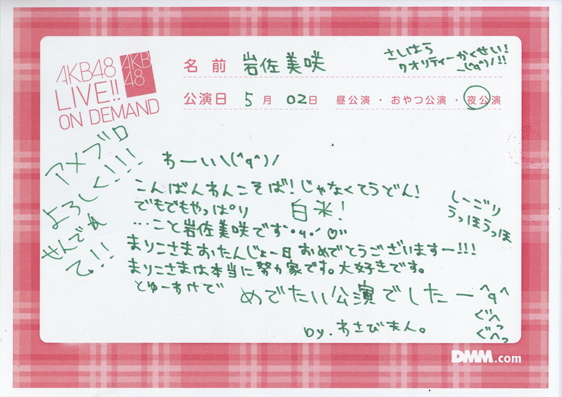 AKB48
LIVE!!
ON DEMAND
AKB
48
名前 岩佐美咲
さしはら
クオリティーかくせい!
公演日 5月 02日 昼公演・おやつ公演・夜公演
アメブロ
よろしく!!!
せんでぃ
乙!!
わーい\(^q^)/
こんばんわんこそば!じゃなくてうどん!
でもでもやっぱり 白米!
…こと岩佐美咲です
まりこさまおたんじょー日おめでとうございますー!!!
まりこさまは本当に努力家です。大好きです。
とゆーわけで めでたい公演でしたー^q^
by.わさび夫人。
しーごり
うっほうっほ
ぐへっ
ぐへっ
DMM.com